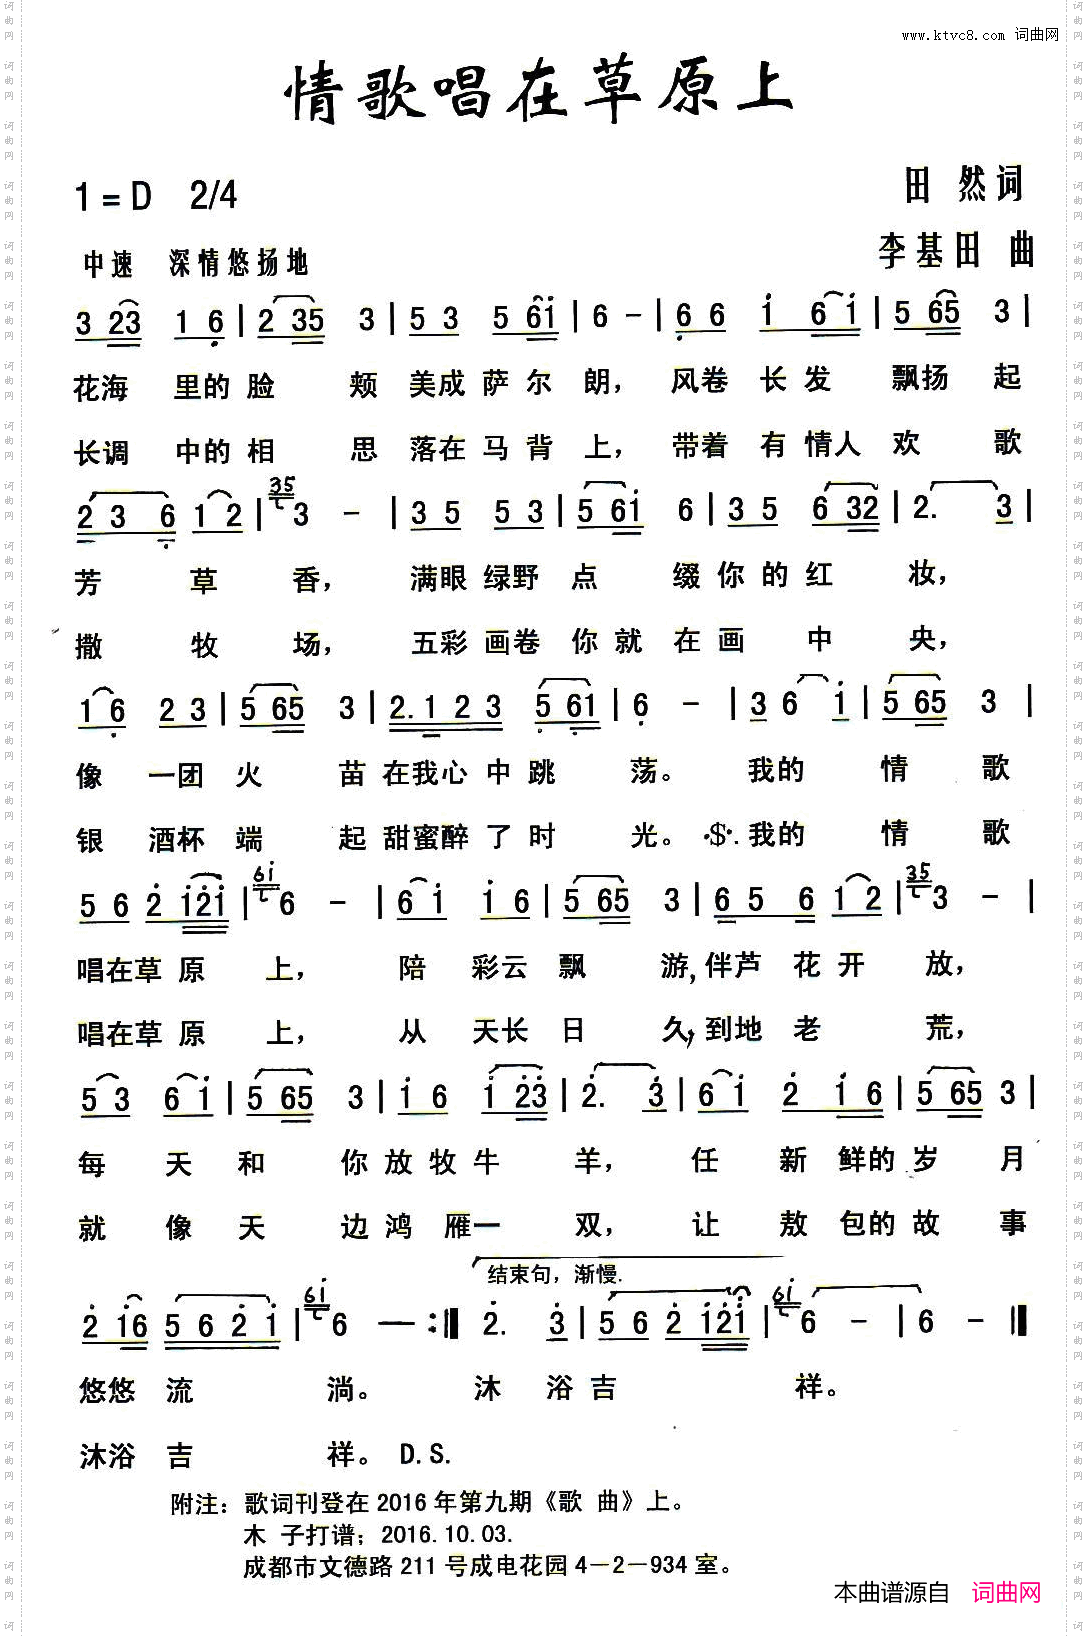 www.ktvc8.com 词曲网
情歌唱在草原上
1=D 2/4
田 然词
中速 深情悠扬地
李基田 曲
3 23 1 6 | 2 35 3 | 5 3 5 6i | 6 - | 6 6 i 6 i | 5 65 3 |
花海 里的 脸 颊 美成 萨尔 朗， 风卷 长 发 飘扬 起
长调 中的 相 思 落在 马 背 上， 带着 有 情人 欢 歌
2 3 6 1 2 | 35 3 - | 3 5 5 3 | 5 6i 6 | 3 5 6 32 | 2. 3 |
芳 草 香， 满眼 绿野 点 缀 你 的 红 妆，
撒 牧 场， 五彩 画卷 你 就 在 画 中 央，
1 6 2 3 | 5 65 3 | 2.1 2 3 5 61 | 6 - | 3 6 i | 5 65 3 |
像 一团 火 苗 在我 心 中 跳 荡。 我的 情 歌
银 酒杯 端 起 甜蜜 醉 了 时 光。 ·$·.我的 情 歌
5 6 2 i2i | 6i 6 - | 6 i i 6 | 5 65 3 | 6 5 6 1 2 | 35 3 - |
唱在 草 原 上， 陪 彩云 飘 游，伴芦 花 开 放，
唱在 草 原 上， 从 天长 日 久，到地 老 荒，
5 3 6 i | 5 65 3 | i 6 i 23 | 2. 3 | 6 i 2 i 6 | 5 65 3 |
每 天 和 你 放 牧 牛 羊， 任 新 鲜的 岁 月
就 像 天 边 鸿 雁一 双， 让 敖 包的 故 事
结束句，渐慢.
2 i6 5 6 2 i | 6i 6 — :‖ 2. 3 | 5 6 2 i2i | 6i 6 - | 6 - ‖
悠悠 流 淌。 沐 浴 吉 祥。
沐浴 吉 祥。 D.S.
附注：歌词刊登在 2016 年第九期《歌 曲》上。
木 子打谱；2016.10.03.
成都市文德路 211 号成电花园 4－2－934 室。
本曲谱源自 词曲网